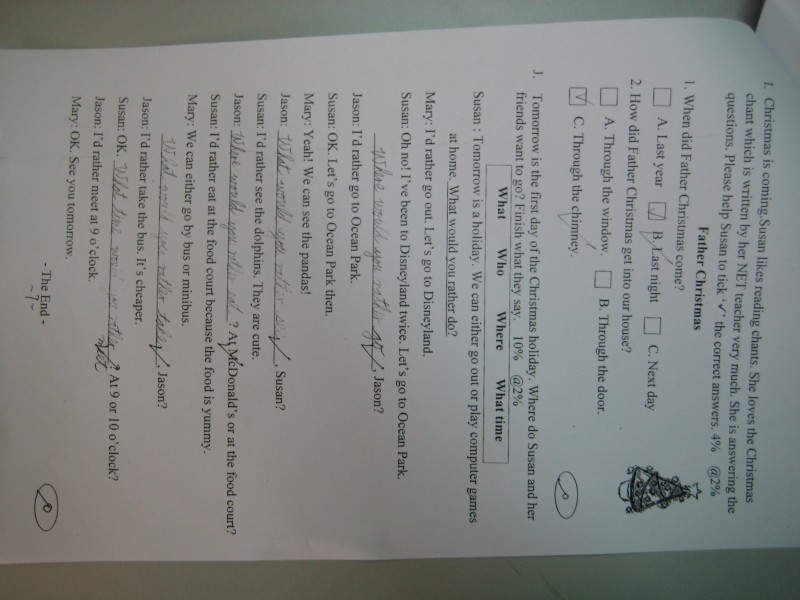 I. Christmas is coming. Susan likes reading chants. She loves the Christmas
chant which is written by her NET teacher very much. She is answering the
questions. Please help Susan to tick '✓' the correct answers. 4% @2%
Father Christmas
1. When did Father Christmas come?
A. Last year ✓ B. Last night C. Next day
2. How did Father Christmas get into our house?
A. Through the window. B. Through the door.
✓ C. Through the chimney.
J. Tomorrow is the first day of the Christmas holiday. Where do Susan and her
friends want to go? Finish what they say. 10% @2%
What Who Where What time
Susan : Tomorrow is a holiday. We can either go out or play computer games
at home. What would you rather do?
Mary: I'd rather go out. Let's go to Disneyland.
Susan: Oh no! I've been to Disneyland twice. Let's go to Ocean Park.
Where would you rather go, Jason?
Jason: I'd rather go to Ocean Park.
Susan: OK. Let's go to Ocean Park then.
Mary: Yeah! We can see the pandas!
Jason: What would you rather see, Susan?
Susan: I'd rather see the dolphins. They are cute.
Jason: Where would you rather eat ? At McDonald's or at the food court?
Susan: I'd rather eat at the food court because the food is yummy.
Mary: We can either go by bus or minibus.
What would you rather take, Jason?
Jason: I'd rather take the bus. It's cheaper.
Susan: OK. What time would you rather meet ? At 9 or 10 o'clock?
Jason: I'd rather meet at 9 o'clock.
Mary: OK. See you tomorrow.
- The End -
~7~